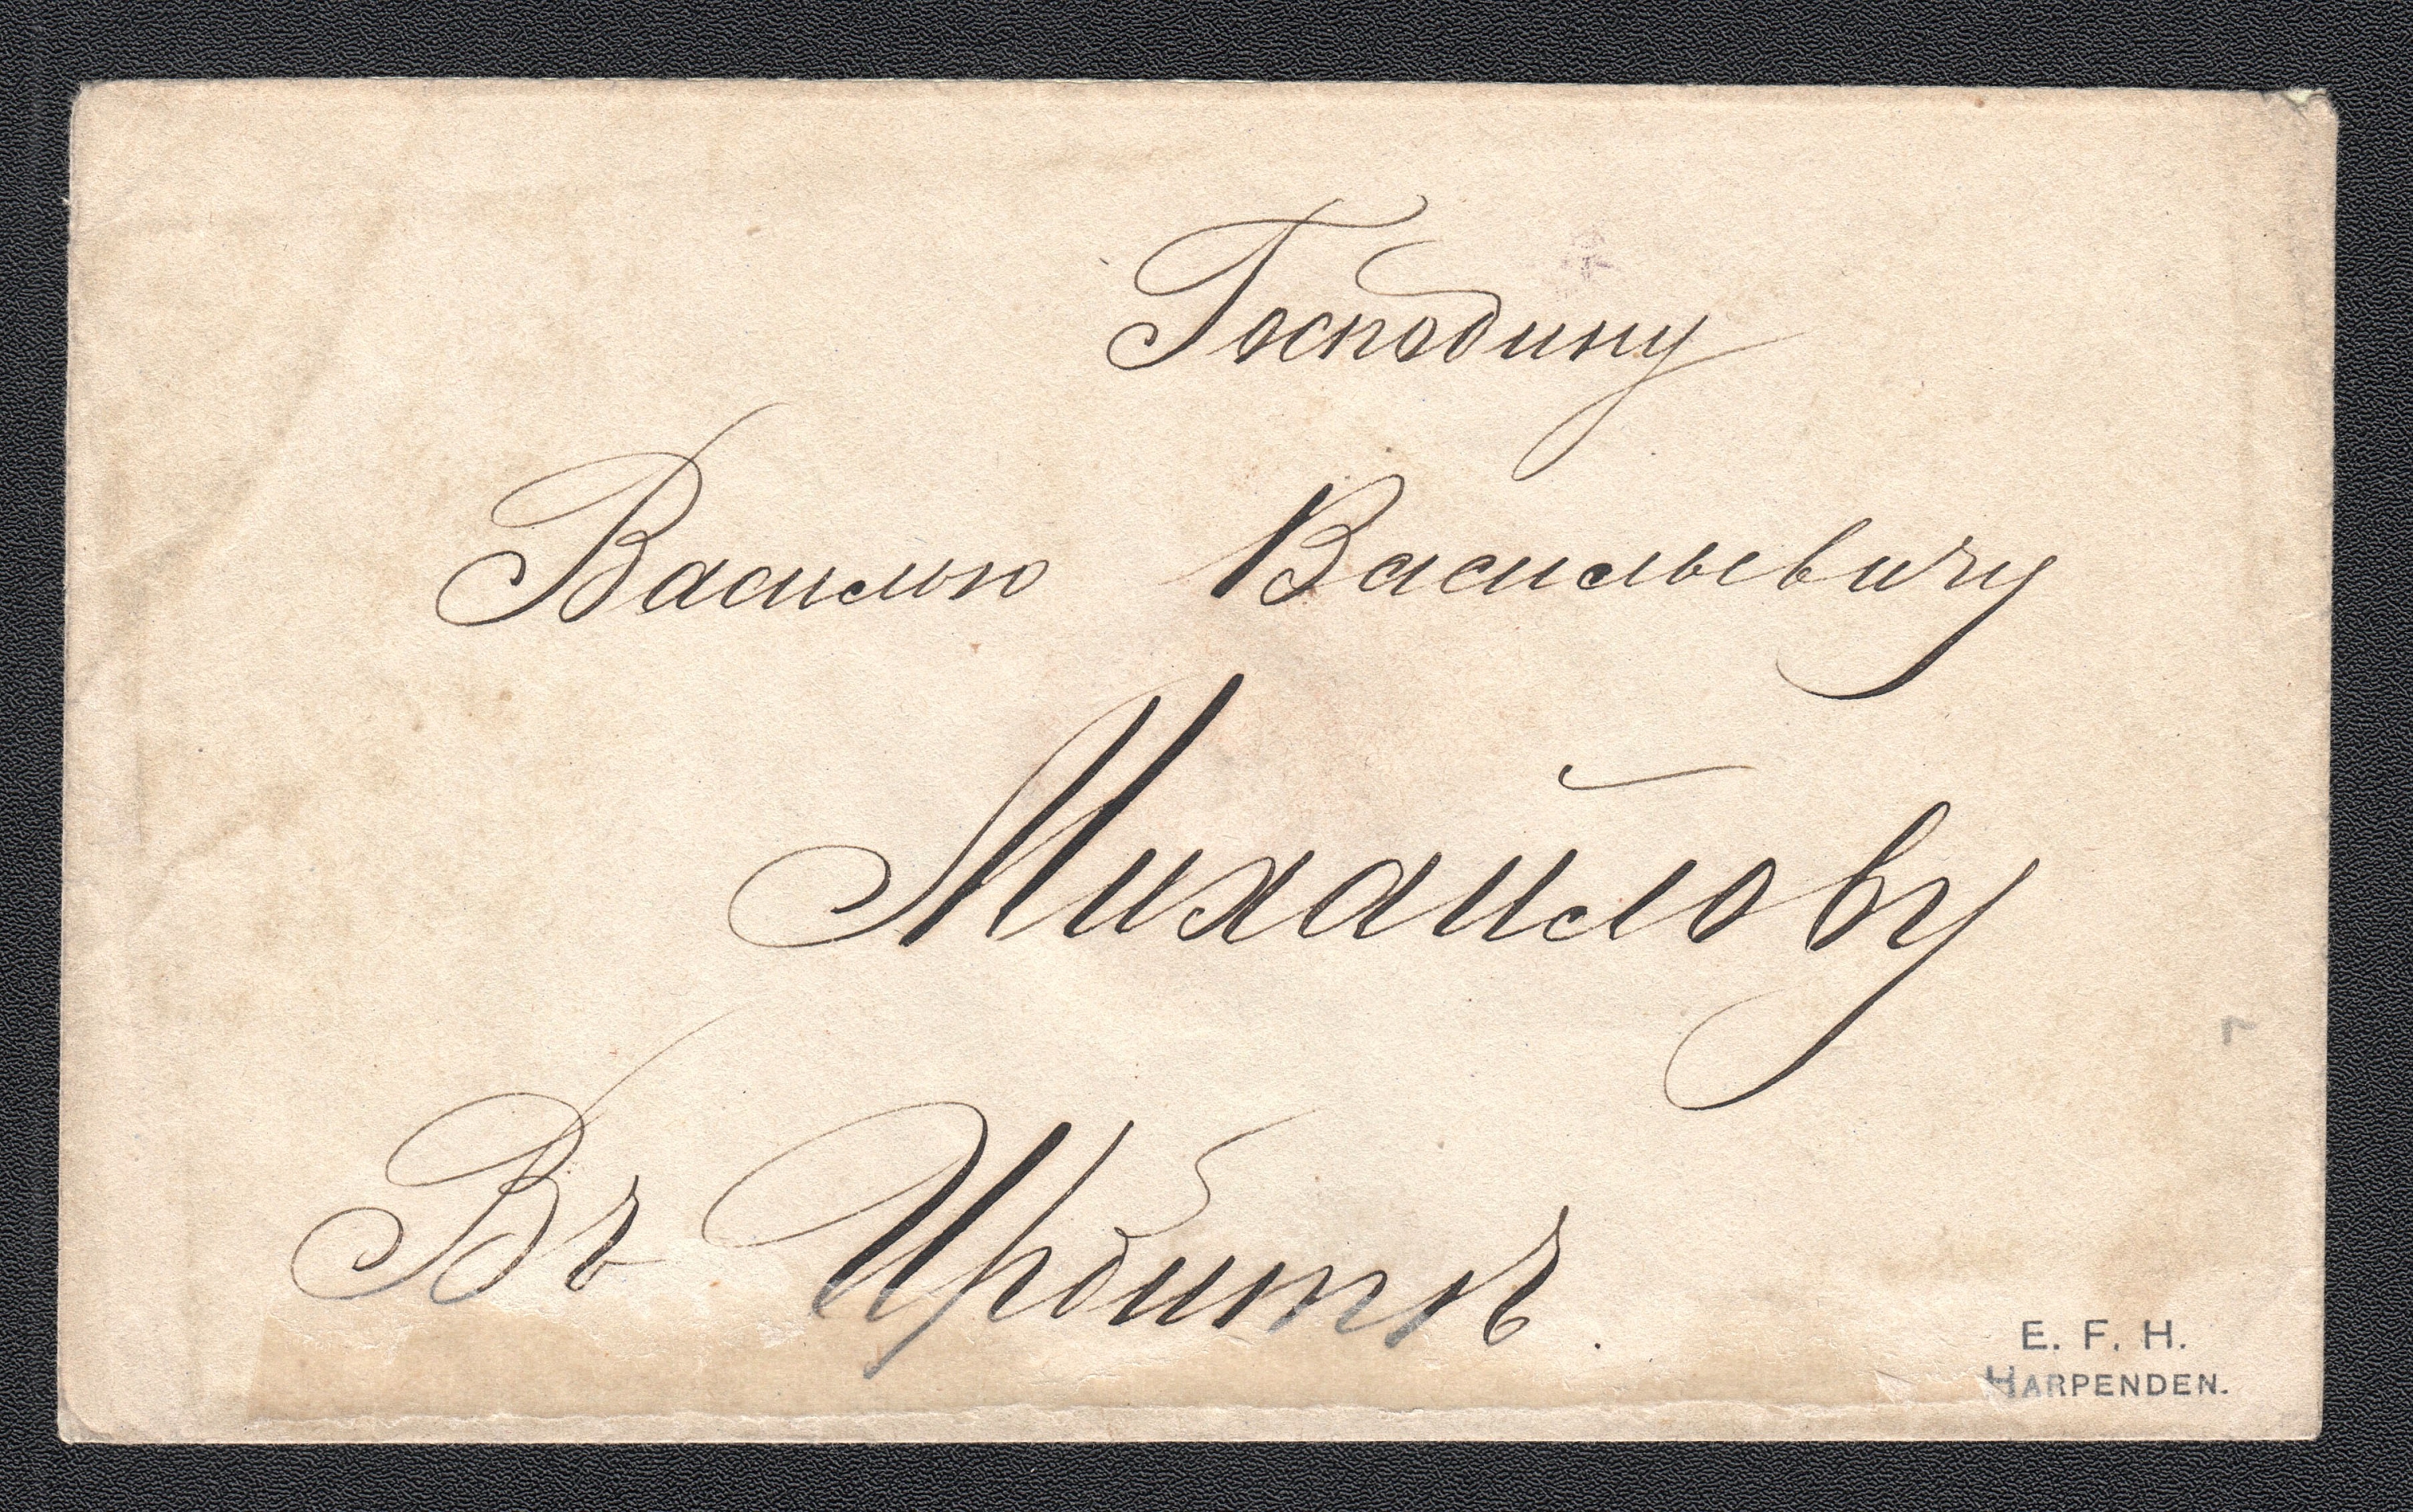 Господину
Василью Васильевичу
Михайлову
Въ Ирбитѣ.
E. F. H.
HARPENDEN.